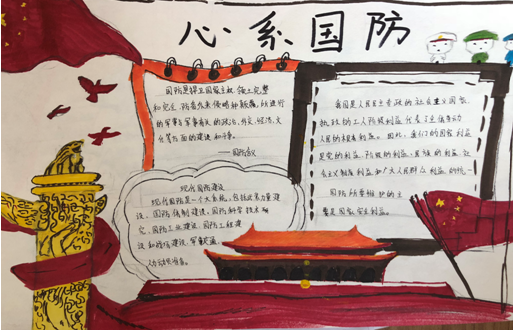 心系国防
国防是捍卫国家主权、领土完整
和安全,防备外来侵略和颠覆,所进行
的军事及军事有关的政治、外交、经济、文
化等方面的建设和斗争。
——国防含义
现代国防建设
现代国防是一个大系统,包括武装力量建
设、国防体制建设、国防科学技术研
究、国防工业建设、国防工程建
设和战场建设、军事交通、
我国是人民民主专政的社会主义国家,
执政的工人阶级利益代表了全体劳动
人民的根本利益。因此,我们的国家利益
是党的利益、阶级的利益、民族的利益、社
会主义制度利益和广大人民群众利益的统一
国防所要维护的主
要是国家安全利益。